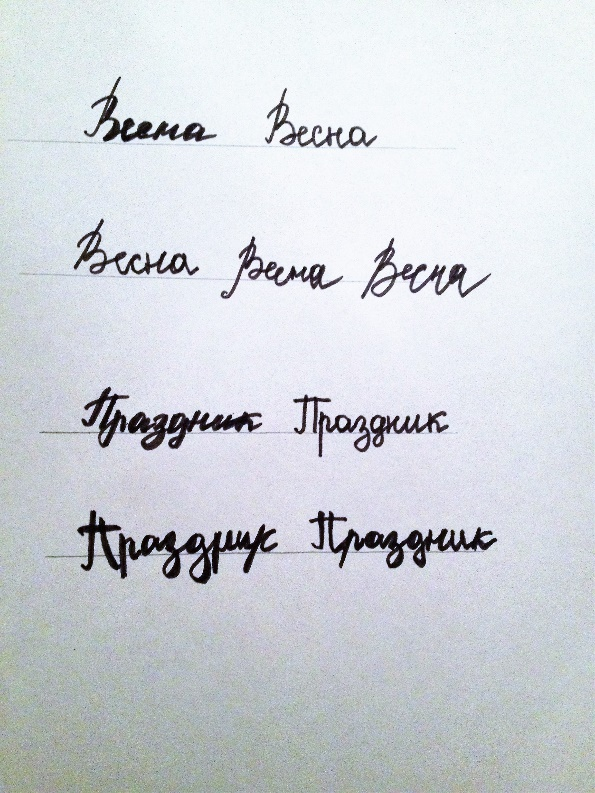 Весна Весна
Весна Весна Весна
Праздник Праздник
Праздник Праздник